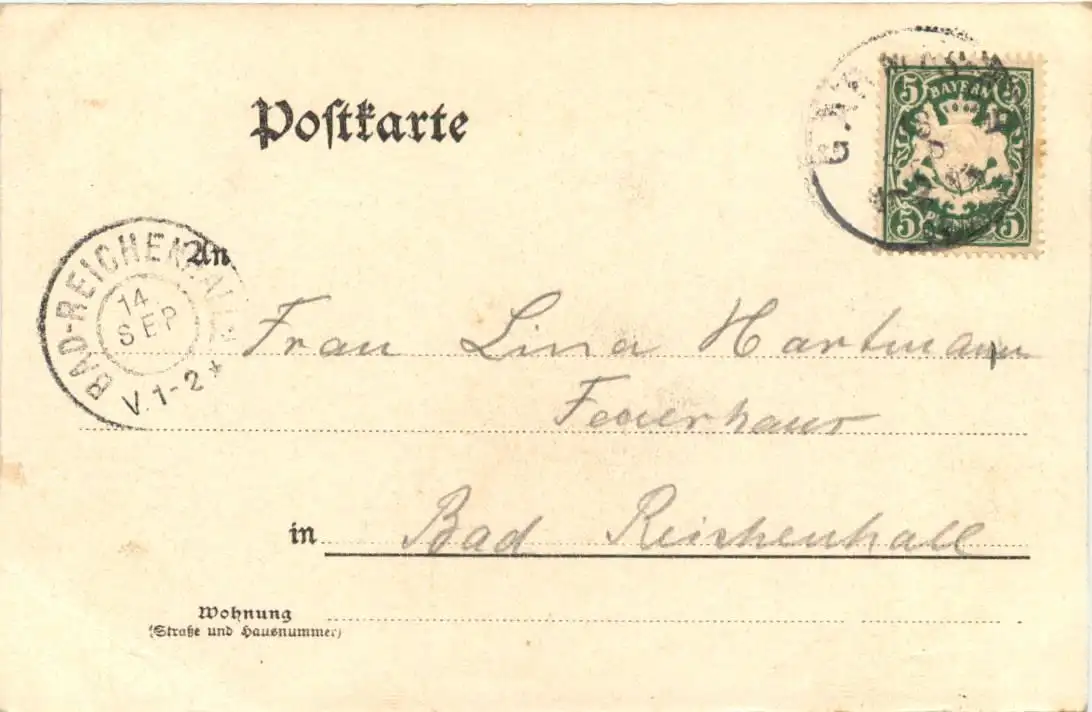 Postkarte
5 BAYERN 5
5 PFENNIG 5
BAD-REICHENHALL
14
SEP
V. 1-2 *
An
Frau Lina Hartmann
Feuerhaus
in Bad Reichenhall
Wohnung
(Straße und Hausnummer)